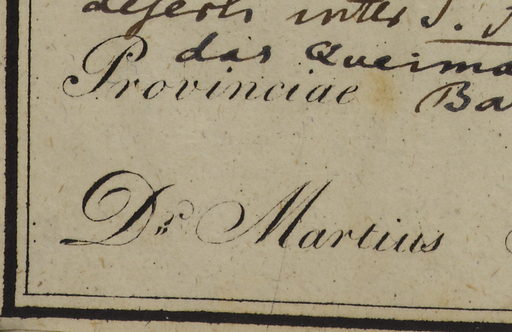 deserti inter S.
das Queima
Provinciae Ba
Dr. Martius